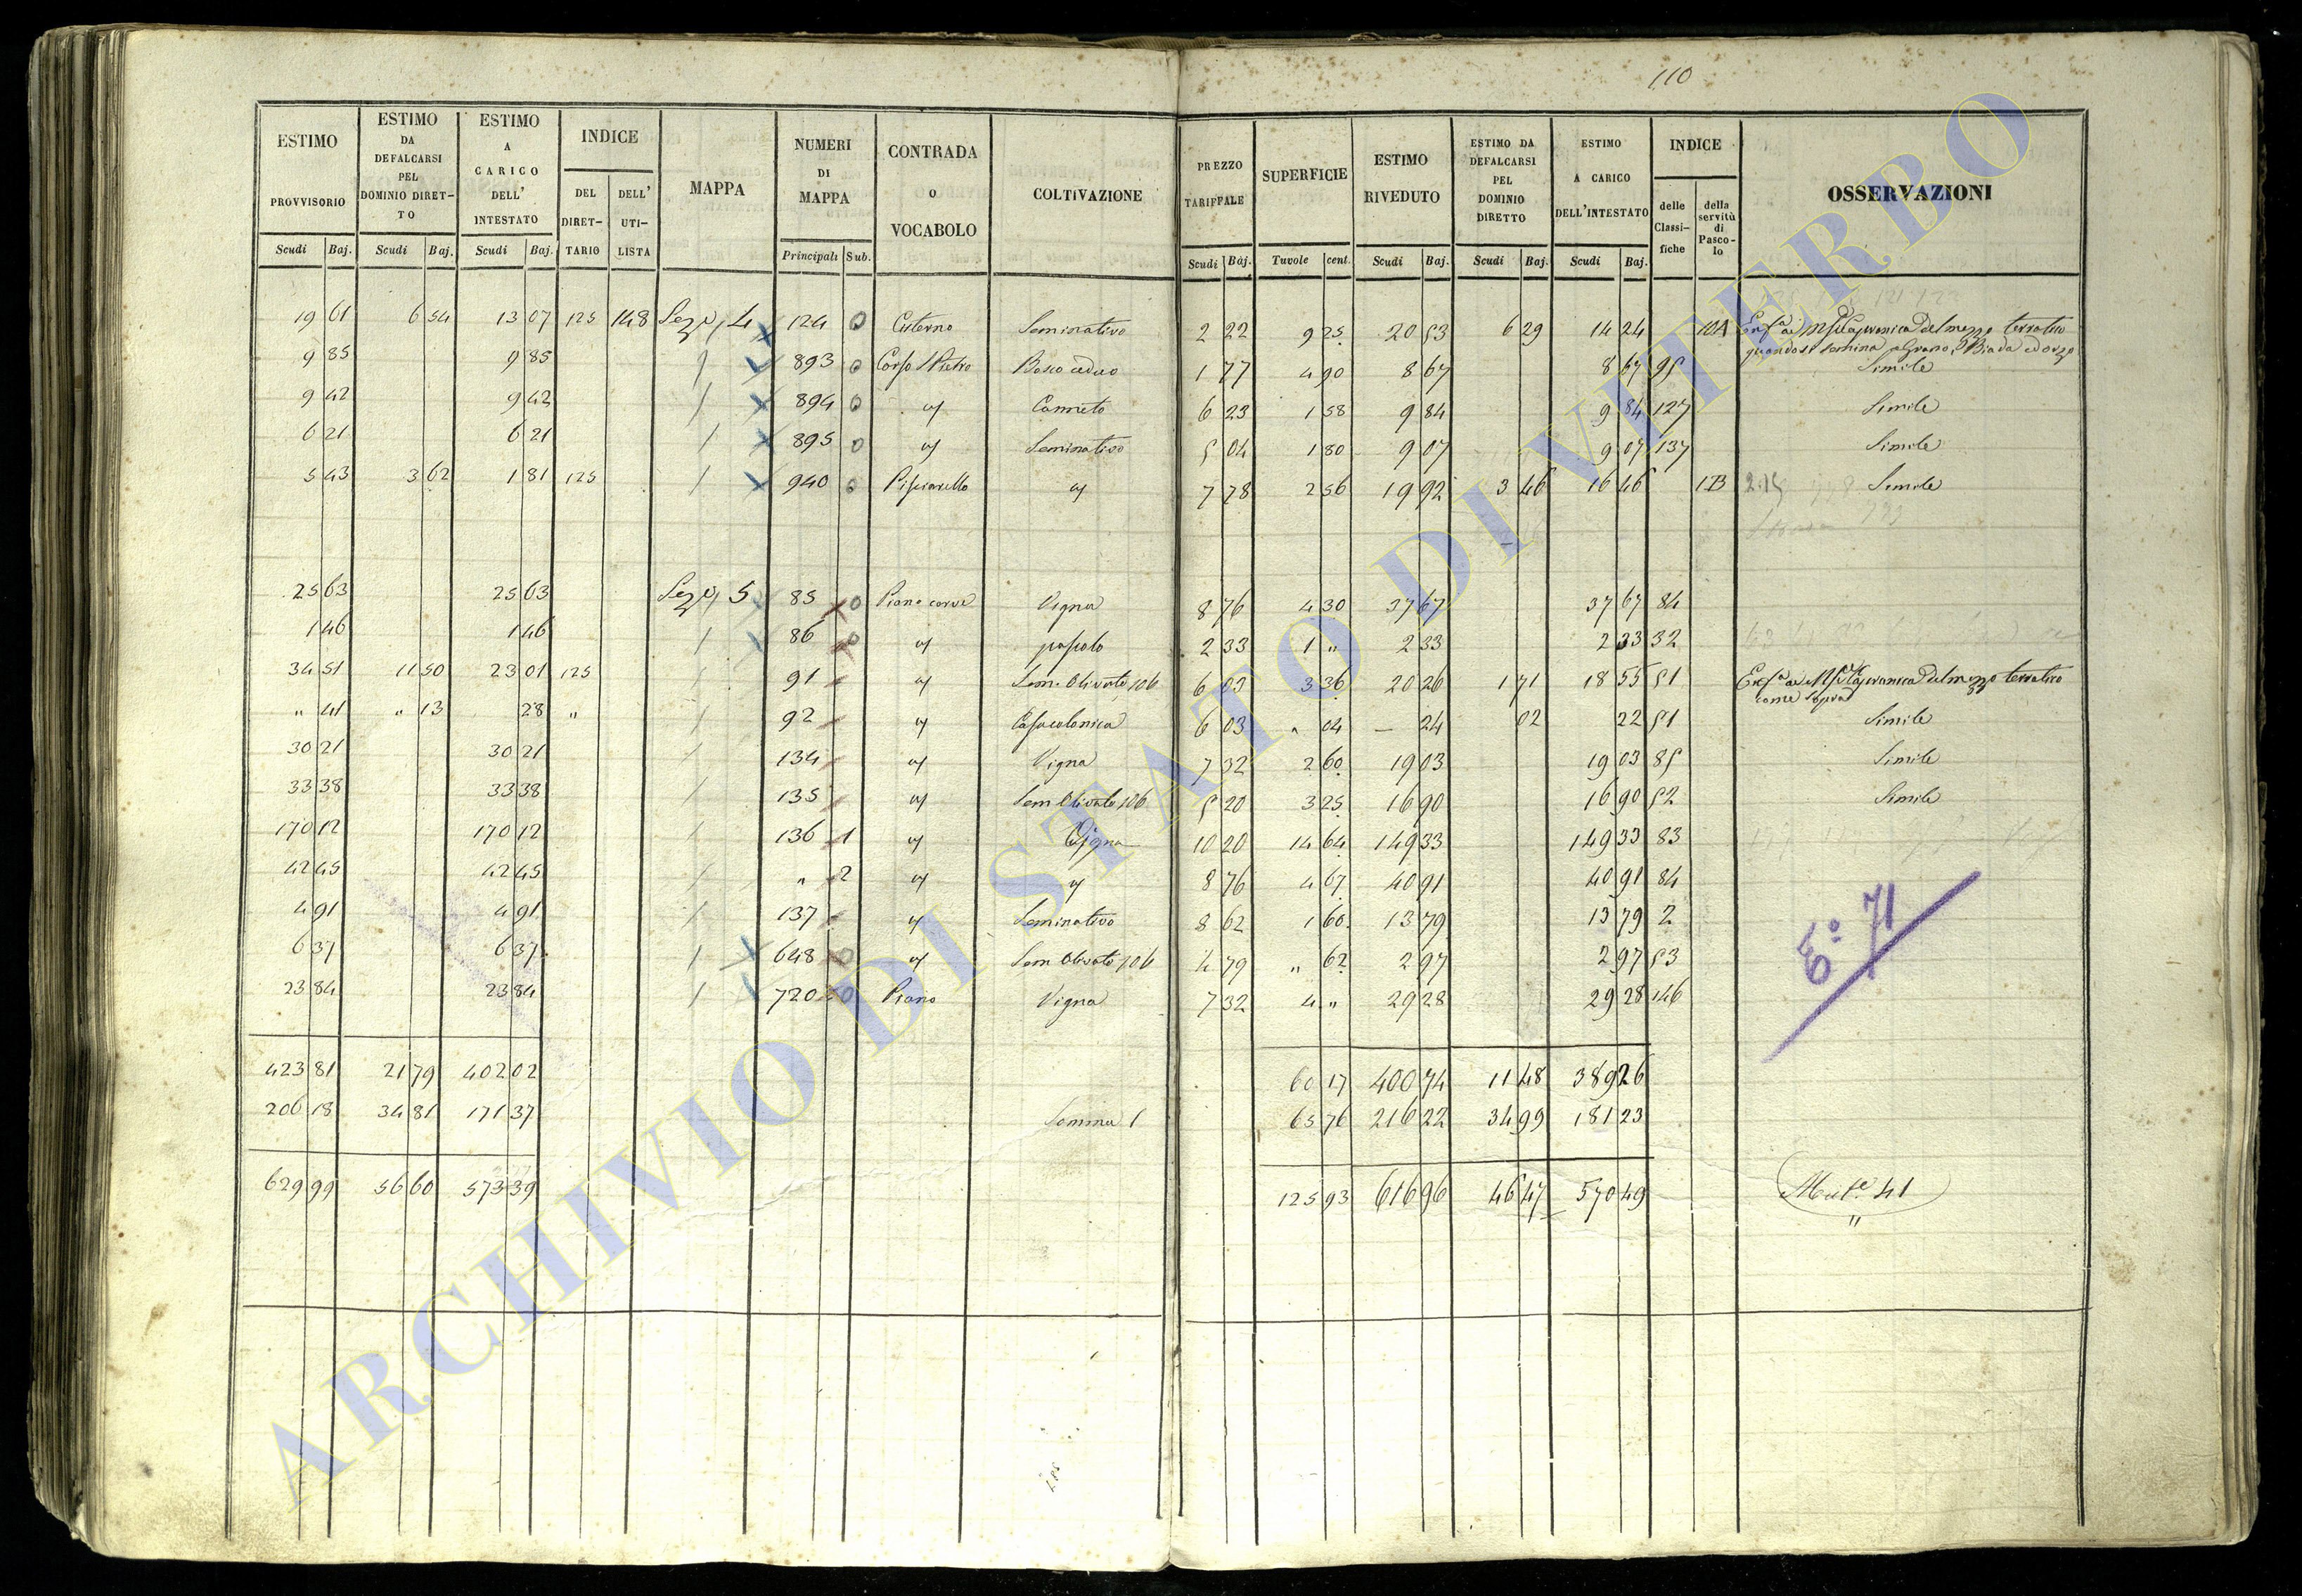 110
ESTIMO PROVVISORIO | ESTIMO DA DEFALCARSI PEL DOMINIO DIRETTO | ESTIMO A CARICO DELL' INTESTATO | INDICE | MAPPA | NUMERI DI MAPPA | CONTRADA O VOCABOLO | COLTIVAZIONE | PREZZO TARIFFALE | SUPERFICIE | ESTIMO RIVEDUTO | ESTIMO DA DEFALCARSI PEL DOMINIO DIRETTO | ESTIMO A CARICO DELL'INTESTATO | INDICE | OSSERVAZIONI
DEL DIRETTARIO | DELL' UTILISTA | delle Classifiche | della servitù di Pascolo
Scudi | Baj. | Scudi | Baj. | Scudi | Baj. | Principali | Sub. | Scudi | Baj. | Tavole | cent. | Scudi | Baj. | Scudi | Baj. | Scudi | Baj.
19 61 | 6 54 | 13 07 | 125 | 148 | Sez. 4 | 124 | 0 | Cisterna | Seminativo | 2 22 | 9 25 | 20 53 | 6 29 | 14 24 | 10A | del mezzo terratico
quando si semina a Grano, Biada ed orzo
9 85 | 9 85 | / | 893 | 0 | Corso S Pietro | Bosco ceduo | 1 77 | 4 90 | 8 67 | 8 67 | 95 | Simile
9 42 | 9 42 | / | 894 | 0 | " | Canneto | 6 23 | 1 58 | 9 84 | 9 84 | 127 | Simile
6 21 | 6 21 | / | 895 | 0 | " | Seminativo | 5 04 | 1 80 | 9 07 | 9 07 | 137 | Simile
5 43 | 3 62 | 1 81 | 125 | / | 940 | 0 | Pisciarello | " | 7 78 | 2 56 | 19 92 | 3 46 | 16 46 | 1B | Simile
25 63 | 25 63 | Sez. 5 | 85 | 0 | Piano | Vigna | 8 76 | 4 30 | 37 67 | 37 67 | 84
1 46 | 1 46 | / | 86 | 0 | " | pascolo | 2 33 | 1 " | 2 33 | 2 33 | 32
34 51 | 11 50 | 23 01 | 125 | / | 91 | " | Sem. Olivato 106 | 6 03 | 3 36 | 20 26 | 1 71 | 18 55 | 51 | del mezzo terratico
come Sopra
" 41 | " 13 | 28 | " | / | 92 | " | Casa colonica | 6 03 | " 04 | — 24 | 02 | 22 | 51 | Simile
30 21 | 30 21 | / | 134 | " | Vigna | 7 32 | 2 60 | 19 03 | 19 03 | 85 | Simile
33 38 | 33 38 | / | 135 | " | Sem Olivato 106 | 5 20 | 3 25 | 16 90 | 16 90 | 52 | Simile
170 12 | 170 12 | / | 136 | 1 | " | Vigna | 10 20 | 14 64 | 149 33 | 149 33 | 83
42 45 | 42 45 | / | " | 2 | " | " | 8 76 | 4 67 | 40 91 | 40 91 | 84
4 91 | 4 91 | / | 137 | " | Seminativo | 8 62 | 1 60 | 13 79 | 13 79 | 2
6 37 | 6 37 | / | 648 | 0 | " | Sem Olivato 106 | 4 79 | " 62 | 2 97 | 2 97 | 53
23 84 | 23 84 | / | 720 | 0 | Piano | Vigna | 7 32 | 4 " | 29 28 | 29 28 | 146
E° 71
423 81 | 21 79 | 402 02 | 60 17 | 400 74 | 11 48 | 389 26
206 18 | 34 81 | 171 37 | Somma | 65 76 | 216 22 | 34 99 | 181 23
629 99 | 56 60 | 573 39 | 125 93 | 616 96 | 46 47 | 570 49 | 41
ARCHIVIO DI STATO DI VITERBO